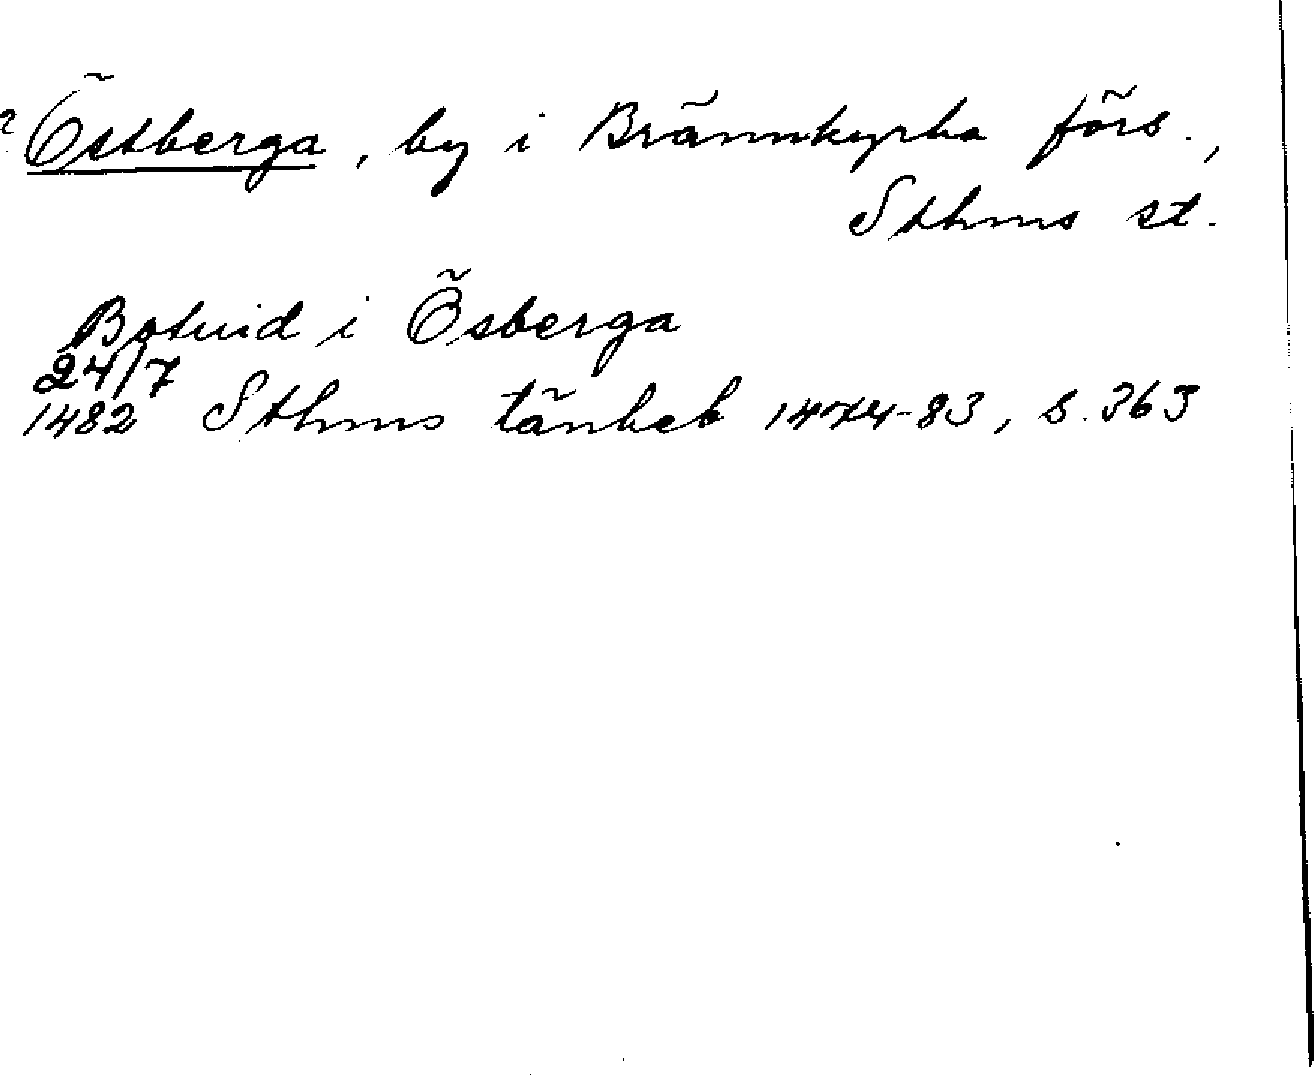 ? Östberga, by i Brännkyrka förs.,
Sthms st.
Botvid i Ösberga
24/7
1482 Sthms tänkeb 1474-83, s. 363